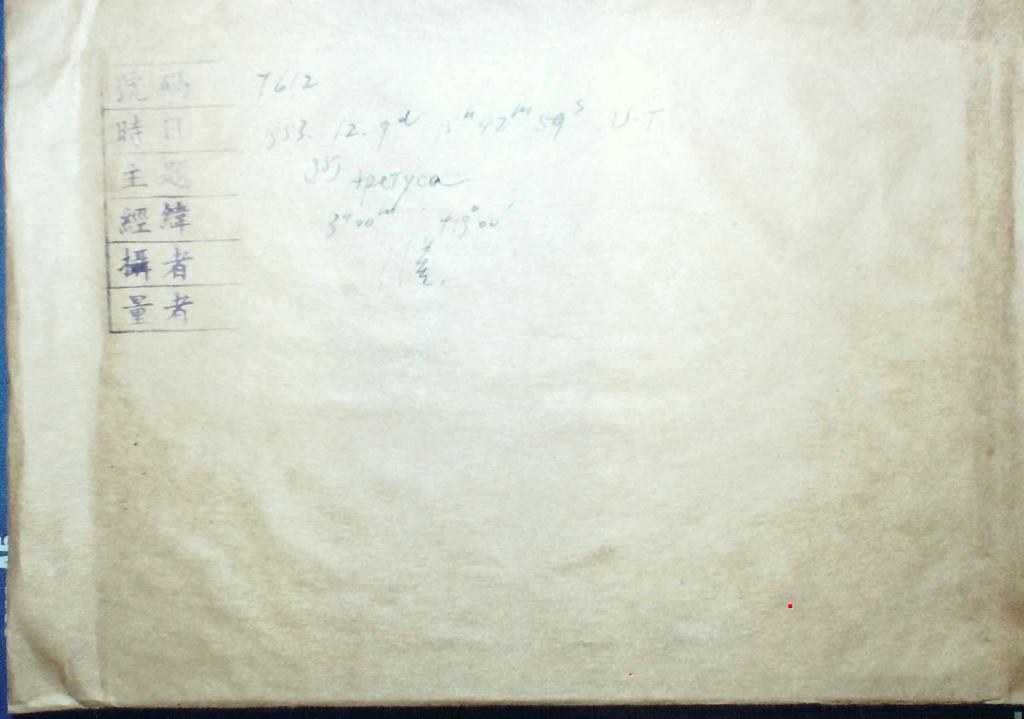 號碼 7612
時日 953. 12. 9ᵈ 15ʰ 42ᵐ 59ˢ U.T.
主題
經緯 3ʰ00ᵐ +19°00′
攝者
量者